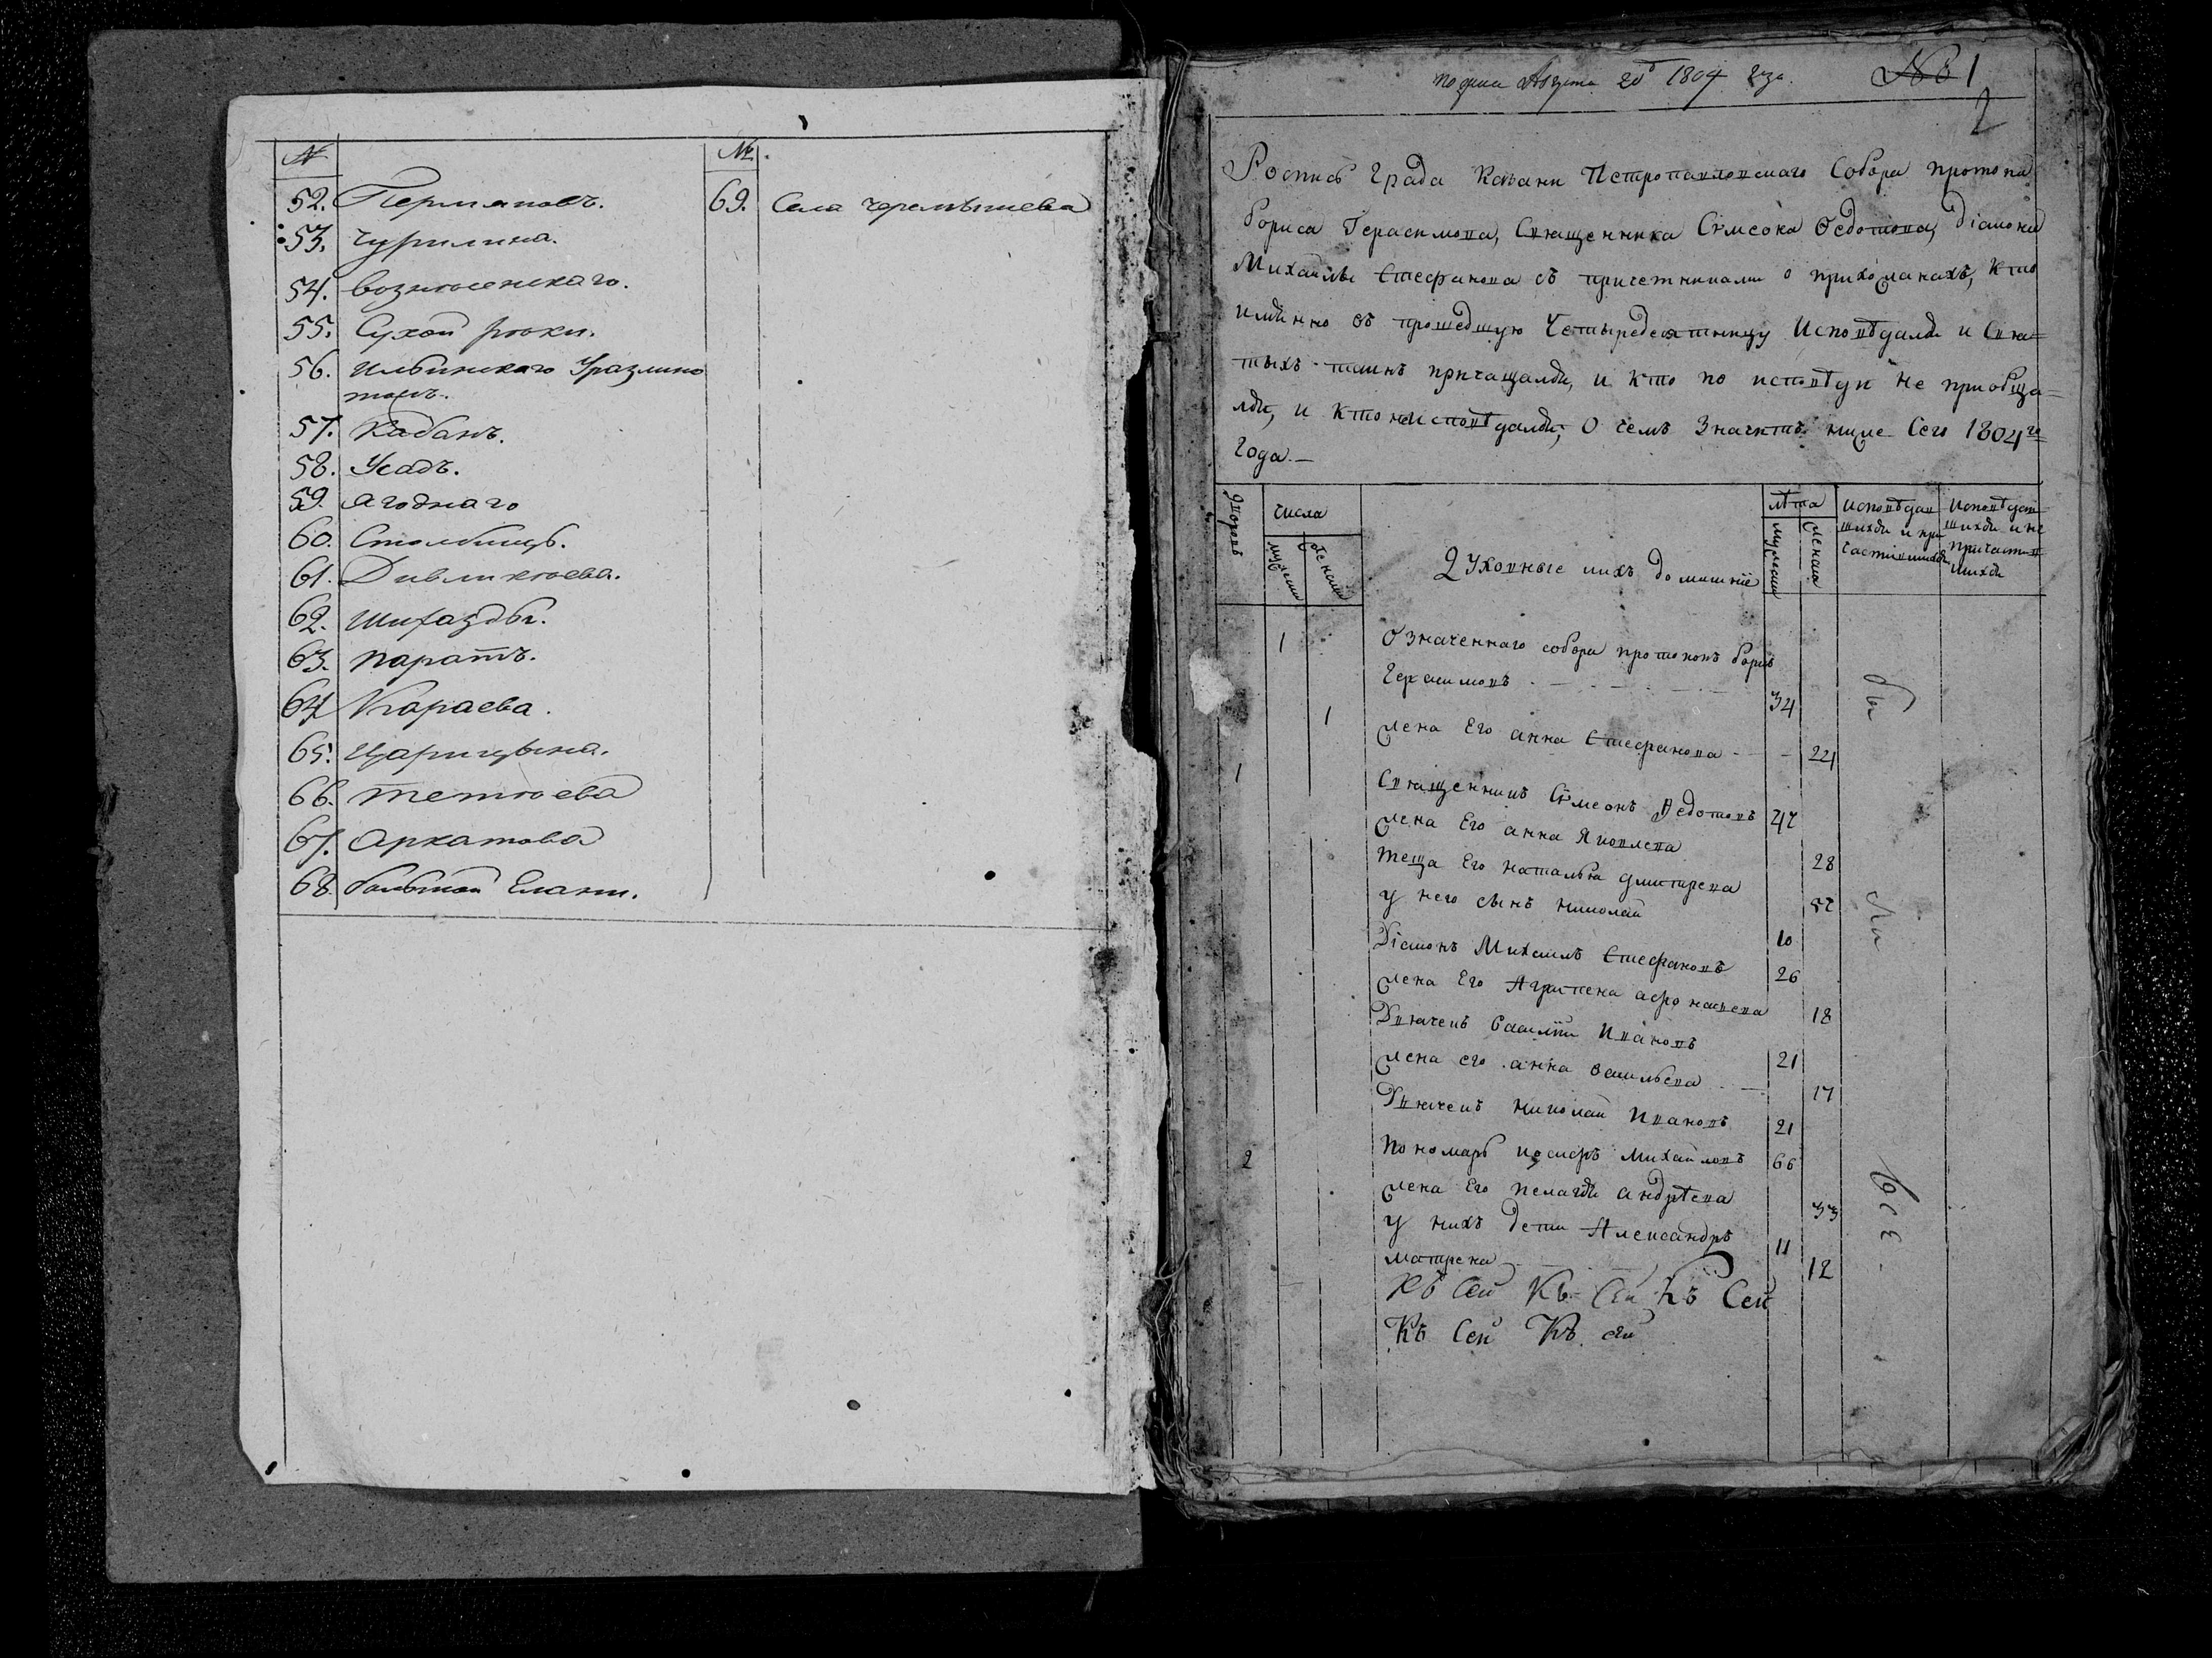 №
52. Пермяковъ.
53. Чурилина.
54. Вознесенскаго.
55. Сухой рѣки.
56. Ильинскаго Уразлино
тожъ.
57. Кабанъ.
58. Усадъ.
59. Ягоднаго
60. Столбищъ.
61. Дивликѣева.
62. Шигазды.
63. Паратъ.
64. Караева.
65. Царицына.
66. Тетѣева
67. Аркатова
68. большой Елани.
№
69. Села Черемышева
Августа 20 1804 года.
№ 1
2
Роспись Града Казани Петропавловскаго Собора протопопа
Бориса Герасимова, Священника Сѵмеона Федотова, Діакона
Михаила Стефанова съ причетниками о прихожанахъ, кто
имянно въ прошедшую Четыредесятницу Исповѣдался и Свя=
тыхъ таинъ причащался, и кто по исповѣди не приобща=
лся, и кто неисповѣдался, О чемъ Значитъ ниже Сего 1804го
Года.
Дворовъ
числа
мужеска
женска
Духовные ихъ домашніе
лѣта
мужеска
женска
исповѣдав
шихся и при
частившихся
Исповѣдав
шихся и не
причастив
шихся
1 Означеннаго собора протопопъ борисъ
Герасимовъ 34
1 жена Его анна Стефанова 22
1 Священникъ Сѵмеонъ Федотовъ 42
жена Его анна Яковлева 28
теща Его наталья дмитрева 52
у него сынъ николай 10
Діаконъ Михаилъ Стефановъ 26
жена Его Агрипена афонасьева 18
Дьячекъ Василій Ивановъ 21
жена его анна васильева 17
Дьячекъ николай Ивановъ 21
2 Пономарь иосифъ михайловъ 66
жена Его пелагея андрѣева 33
у нихъ дети Александръ 11
матрена 12
Къ Сей Къ Сей Къ Сей
Къ Сей Къ сей
бы
ли
всѣ